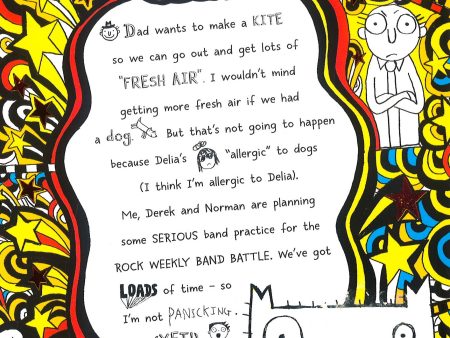 Dad wants to make a KITE
so we can go out and get lots of
"FRESH AIR". I wouldn't mind
getting more fresh air if we had
a dog. But that's not going to happen
because Delia's "allergic" to dogs
(I think I'm allergic to Delia).
Me, Derek and Norman are planning
some SERIOUS band practice for the
ROCK WEEKLY BAND BATTLE. We've got
LOADS of time - so
I'm not PANSCKING.